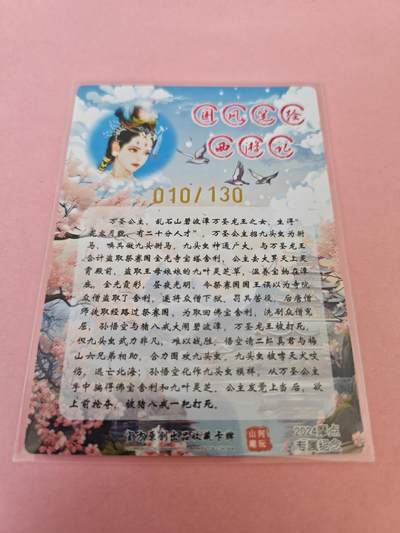 国风笔绘
西游记
010/130
万圣公主，乱石山碧波潭万圣龙王之女，生得“
花容月貌，有二十分人才”。万圣公主招九头虫为驸
马，唤其做九头驸马，九头虫神通广大，与万圣龙王
合计盗取祭赛国金光寺宝塔舍利，公主去大罗天上灵
霄殿前，盗取王母娘娘的九叶灵芝草，温养宝物在潭
底，金光霞彩，昼夜光明，今祭赛国国王误以为寺院
众僧盗取了舍利，遂将众僧下狱，罚其苦役，后唐僧
师徒取经路过祭赛国，为取回佛宝舍利，洗刷众僧冤
屈，孙悟空与猪八戒大闹碧波潭，万圣龙王被打死，
但九头虫武力非凡，难以战胜，悟空请二郎真君与梅
山六兄弟相助，合力围攻九头虫，九头虫被哮天犬咬
伤，逃亡北海；孙悟空化作九头虫模样，从万圣公主
手中骗得佛宝舍利和九叶灵芝，公主发觉上当后，欲
上前抢夺，被猪八戒一耙打死。
官方原创出品收藏卡牌
2024摩点
专属纪念